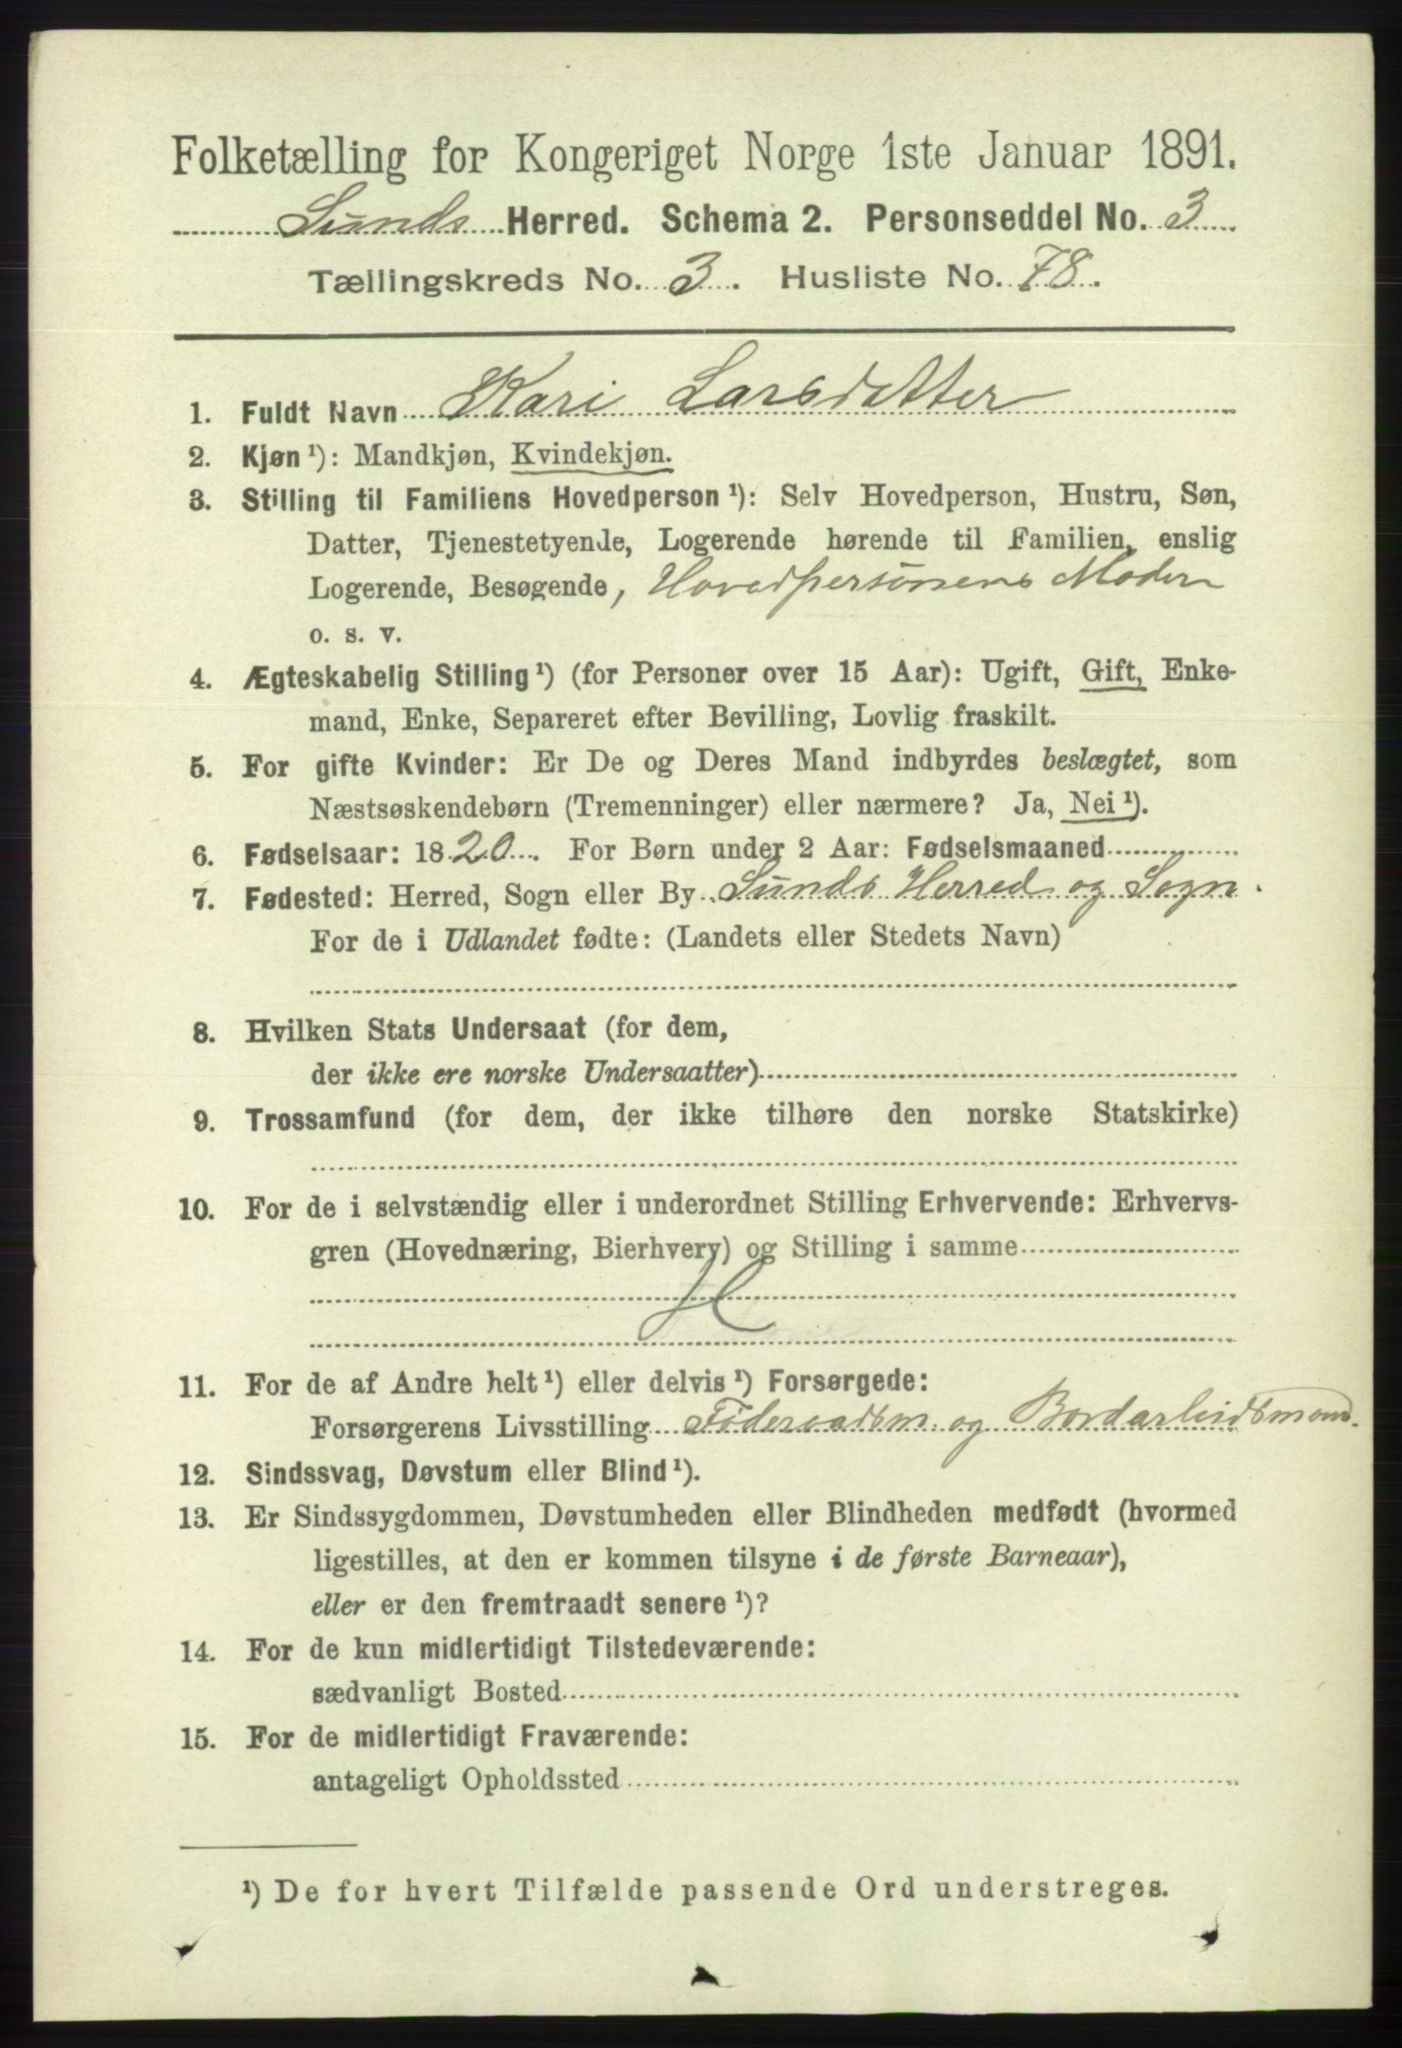 Folketælling for Kongeriget Norge 1ste Januar 1891.
Sunds Herred. Schema 2. Personseddel No. 3
Tællingskreds No. 3. Husliste No. 78.
1. Fuldt Navn Kari Larsdatter
2. Kjøn ¹): Mandkjøn, Kvindekjøn.
3. Stilling til Familiens Hovedperson ¹): Selv Hovedperson, Hustru, Søn,
Datter, Tjenestetyende, Logerende hørende til Familien, enslig
Logerende, Besøgende, Hovedpersonens Moder
o. s. v.
4. Ægteskabelig Stilling ¹) (for Personer over 15 Aar): Ugift, Gift, Enke-
mand, Enke, Separeret efter Bevilling, Lovlig fraskilt.
5. For gifte Kvinder: Er De og Deres Mand indbyrdes beslægtet, som
Næstsøskendebørn (Tremenninger) eller nærmere? Ja, Nei ¹).
6. Fødselsaar: 1820. For Børn under 2 Aar: Fødselsmaaned
7. Fødested: Herred, Sogn eller By Sunds Herred og Sogn.
For de i Udlandet fødte: (Landets eller Stedets Navn)
8. Hvilken Stats Undersaat (for dem,
der ikke ere norske Undersaatter)
9. Trossamfund (for dem, der ikke tilhøre den norske Statskirke)
10. For de i selvstændig eller i underordnet Stilling Erhvervende: Erhvervs-
gren (Hovednæring, Bierhverv) og Stilling i samme
H
11. For de af Andre helt ¹) eller delvis ¹) Forsørgede:
Forsørgerens Livsstilling Føderaadsm. og Bordarbeidsmand.
12. Sindssvag, Døvstum eller Blind ¹).
13. Er Sindssygdommen, Døvstumheden eller Blindheden medfødt (hvormed
ligestilles, at den er kommen tilsyne i de første Barneaar),
eller er den fremtraadt senere ¹)?
14. For de kun midlertidigt Tilstedeværende:
sædvanligt Bosted
15. For de midlertidigt Fraværende:
antageligt Opholdssted
¹) De for hvert Tilfælde passende Ord understreges.